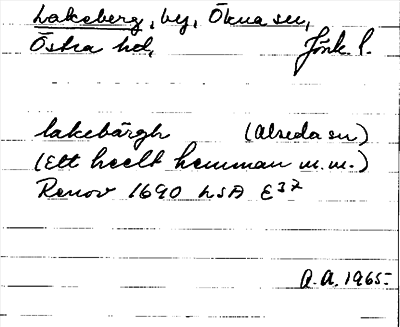 Lakeberg, by, Ökna sn,
Östra hd, Jönk l.
lakebärgh (Alseda sn)
(Ett heelt hemman m.m.)
Renov 1690 LSA E37
A.A. 1965.